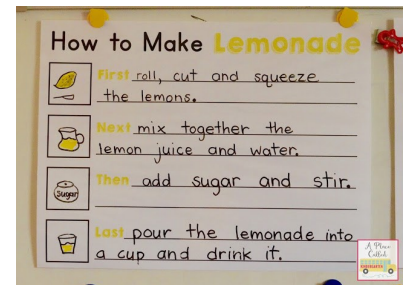 How to Make Lemonade
First roll, cut and squeeze
the lemons.
Next mix together the
lemon juice and water.
Then add sugar and stir.
Sugar
Last pour the lemonade into
a cup and drink it.
A Place
Called